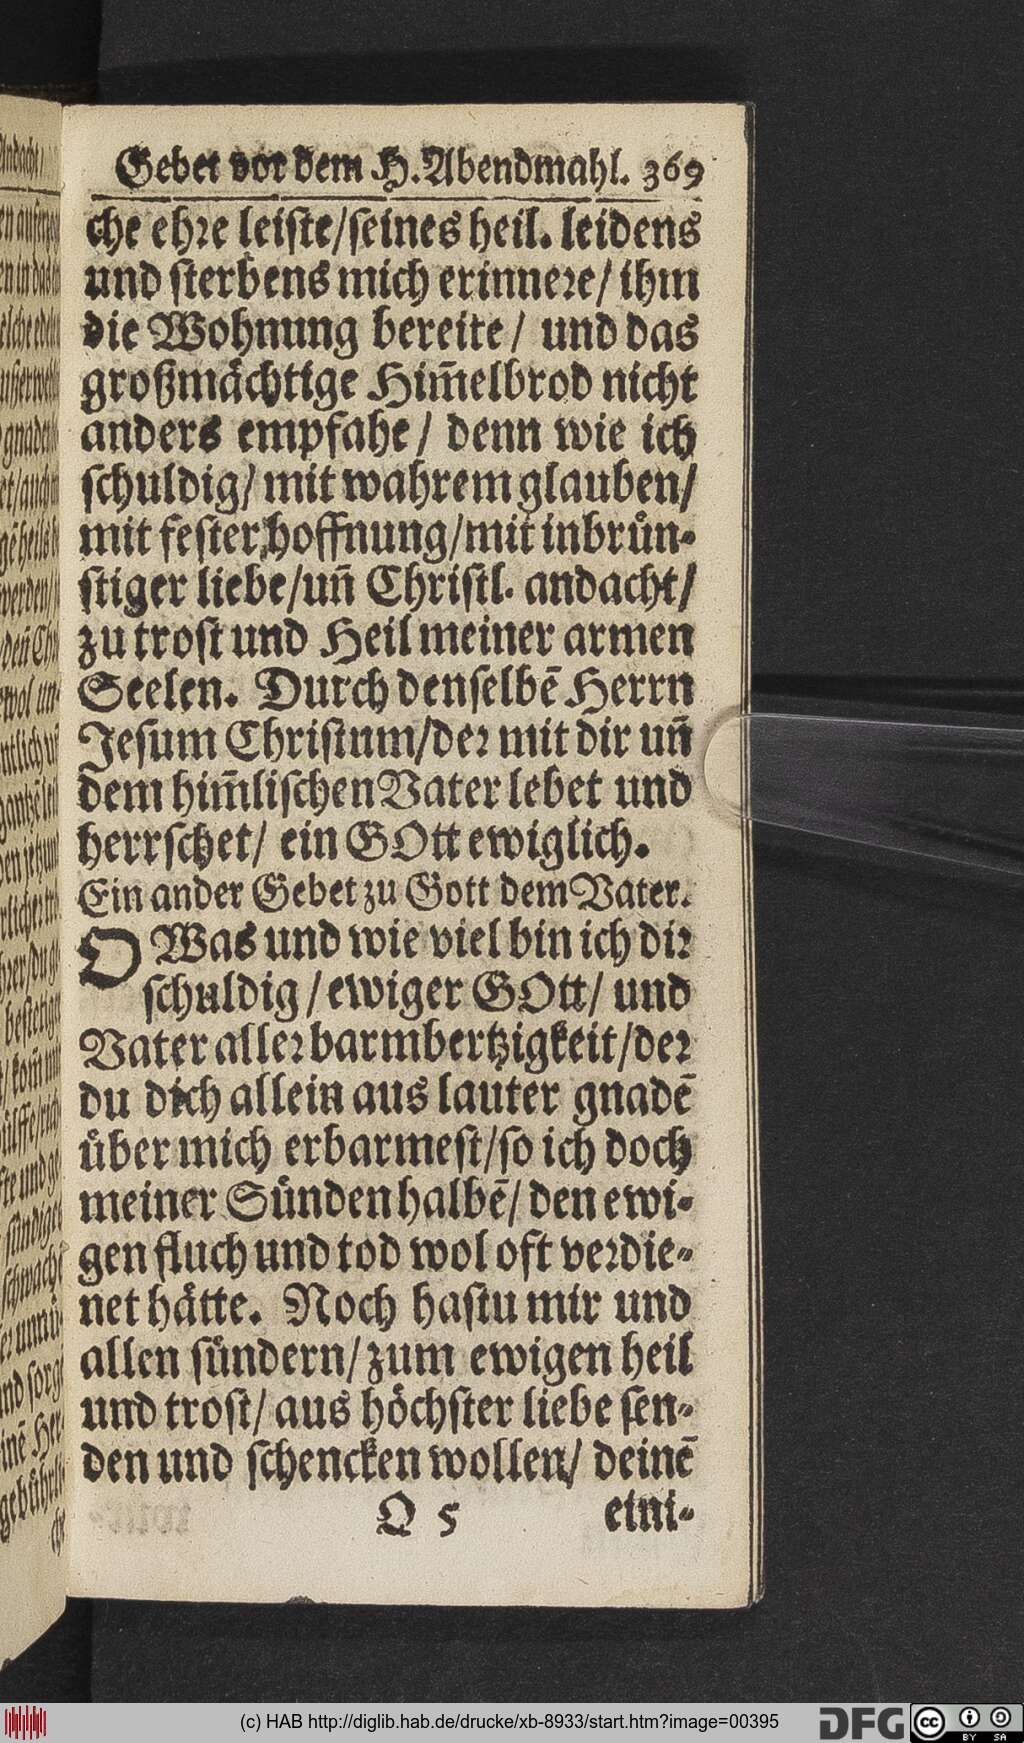 Gebet vor dem H. Abendmahl. 369
che ehre leiste/seines heil. leidens
und sterbens mich erinnere/ ihm
die Wohnung bereite/ und das
großmächtige Him̄elbrod nicht
anders empfahe/ denn wie ich
schuldig/ mit wahrem glauben/
mit fester hoffnung/mit inbrůn-
stiger liebe/un̄ Christl. andacht/
zu trost und Heil meiner armen
Seelen. Durch denselbē Herrn
Jesum Christum/der mit dir un̄
dem him̄lischen Vater lebet und
herrschet/ ein GOtt ewiglich.
Ein ander Gebet zu Gott dem Vater.
O Was und wie viel bin ich dir
schuldig/ewiger GOtt/ und
Vater aller barmhertzigkeit/der
du dich allein aus lauter gnadē
ůber mich erbarmest/so ich doch
meiner Sünden halbē/ den ewi-
gen fluch und tod wol oft verdie-
net håtte. Noch hastu mir und
allen sůndern/zum ewigen heil
und trost/ aus höchster liebe sen-
den und schencken wollen/ deinē
Q 5 eini-
(c) HAB http://diglib.hab.de/drucke/xb-8933/start.htm?image=00395
DFG cc BY SA